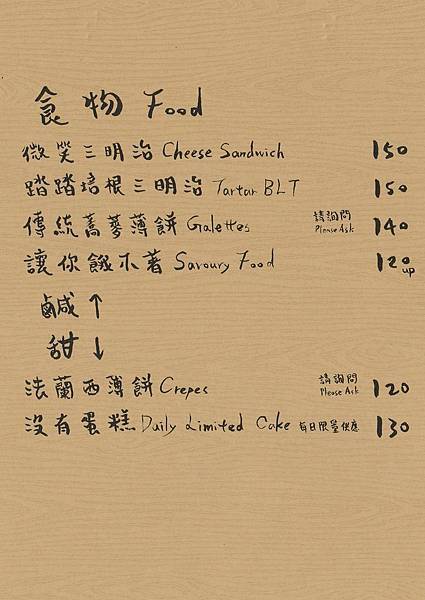 食物 Food
微笑三明治 Cheese Sandwich 150
踏踏培根三明治 Tartar BLT 150
傳統蕎麥薄餅 Galettes 請詢問 Please Ask 140
讓你餓不著 Savoury Food 120 up
鹹 ↑
甜 ↓
法蘭西薄餅 Crepes 請詢問 Please Ask 120
沒有蛋糕 Daily Limited Cake 每日限量供應 130